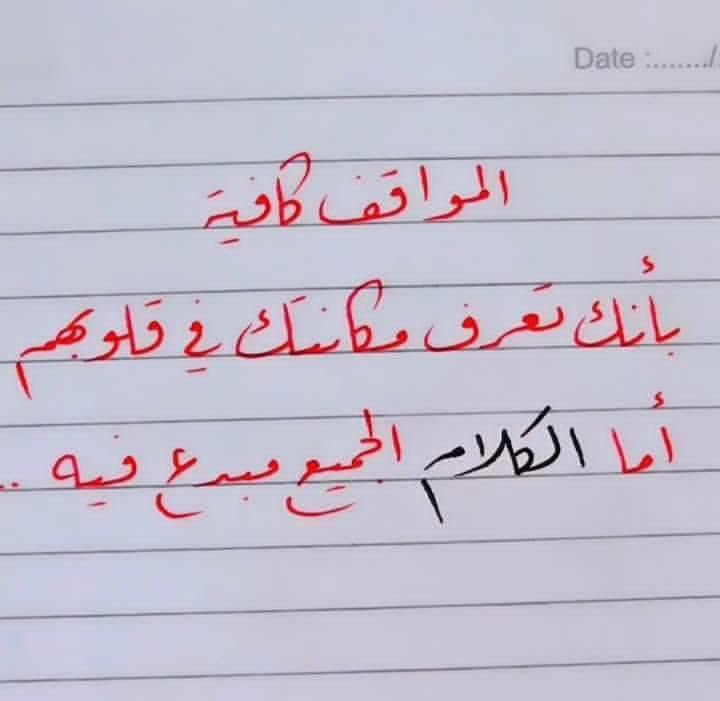 Date :......./.
المواقف كافية
بأنك تعرف مكانتك في قلوبهم
أما الكلام الجميع مبدع فيه ..